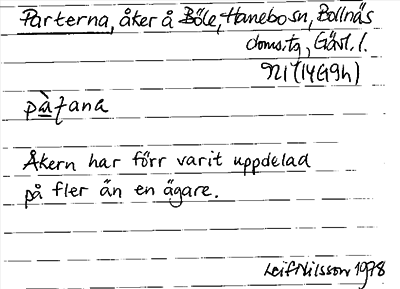 Parterna, åker å Böle, Hanebo sn, Bollnäs
doms.tg, Gävl. l.
NI (14G9h)
Åkern har förr varit uppdelad
på fler än en ägare.
Leif Nilsson 1978